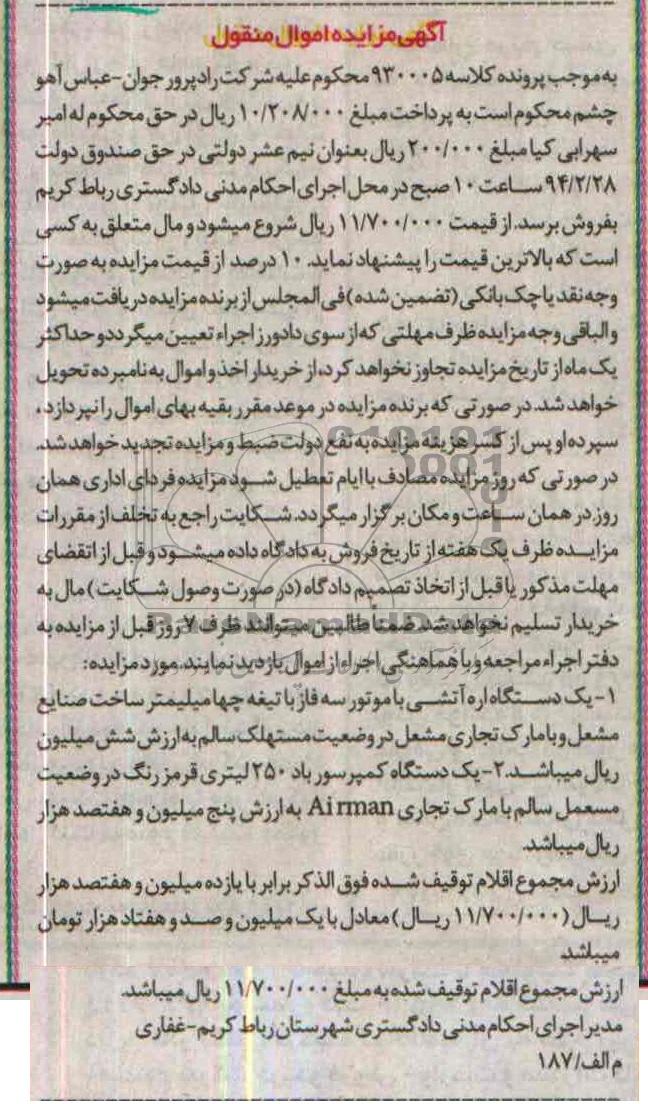 آگهی مزایده اموال منقول
به موجب پرونده کلاسه ۹۳۰۰۰۵ محکوم علیه شرکت راد پرور جوان-عباس آهو
چشم محکوم است به پرداخت مبلغ ۱۰/۲۰۸/۰۰۰ ریال در حق محکوم له امیر
سهرابی کیا مبلغ ۲۰۰/۰۰۰ ریال بعنوان نیم عشر دولتی در حق صندوق دولت
۹۴/۲/۲۸ ساعت ۱۰ صبح در محل اجرای احکام مدنی دادگستری رباط کریم
بفروش برسد. از قیمت ۱۱/۷۰۰/۰۰۰ ریال شروع میشود و مال متعلق به کسی
است که بالاترین قیمت را پیشنهاد نماید. ۱۰ درصد از قیمت مزایده به صورت
وجه نقد یا چک بانکی (تضمین شده) فی المجلس از برنده مزایده دریافت میشود
و الباقی وجه مزایده ظرف مهلتی که از سوی دادورز اجراء تعیین میگردد و حداکثر
یک ماه از تاریخ مزایده تجاوز نخواهد کرد، از خریدار اخذ و اموال به نامبرده تحویل
خواهد شد. در صورتی که برنده مزایده در موعد مقرر بقیه بهای اموال را نپردازد،
سپرده او پس از کسر هزینه مزایده به نفع دولت ضبط و مزایده تجدید خواهد شد.
در صورتی که روز مزایده مصادف با ایام تعطیل شود مزایده فردای اداری همان
روز در همان ساعت و مکان برگزار میگردد. شکایت راجع به تخلف از مقررات
مزایده ظرف یک هفته از تاریخ فروش به دادگاه داده میشود و قبل از انقضای
مهلت مذکور یا قبل از اتخاذ تصمیم دادگاه (در صورت وصول شکایت) مال به
خریدار تسلیم نخواهد شد. ضمناً طالبین میتوانند ظرف ۷ روز قبل از مزایده به
دفتر اجراء مراجعه و با هماهنگی اجراء از اموال بازدید نمایند. مورد مزایده:
۱- یک دستگاه اره آتشی با موتور سه فاز با تیغه چها میلیمتر ساخت صنایع
مشعل و با مارک تجاری مشعل در وضعیت مستهلک سالم به ارزش شش میلیون
ریال میباشد. ۲- یک دستگاه کمپرسور باد ۲۵۰ لیتری قرمز رنگ در وضعیت
مسعمل سالم با مارک تجاری Airman به ارزش پنج میلیون و هفتصد هزار
ریال میباشد.
ارزش مجموع اقلام توقیف شده فوق الذکر برابر با یازده میلیون و هفتصد هزار
ریال (۱۱/۷۰۰/۰۰۰ ریال) معادل با یک میلیون و صد و هفتاد هزار تومان
میباشد
ارزش مجموع اقلام توقیف شده به مبلغ ۱۱/۷۰۰/۰۰۰ ریال میباشد.
مدیر اجرای احکام مدنی دادگستری شهرستان رباط کریم-غفاری
م الف/۱۸۷